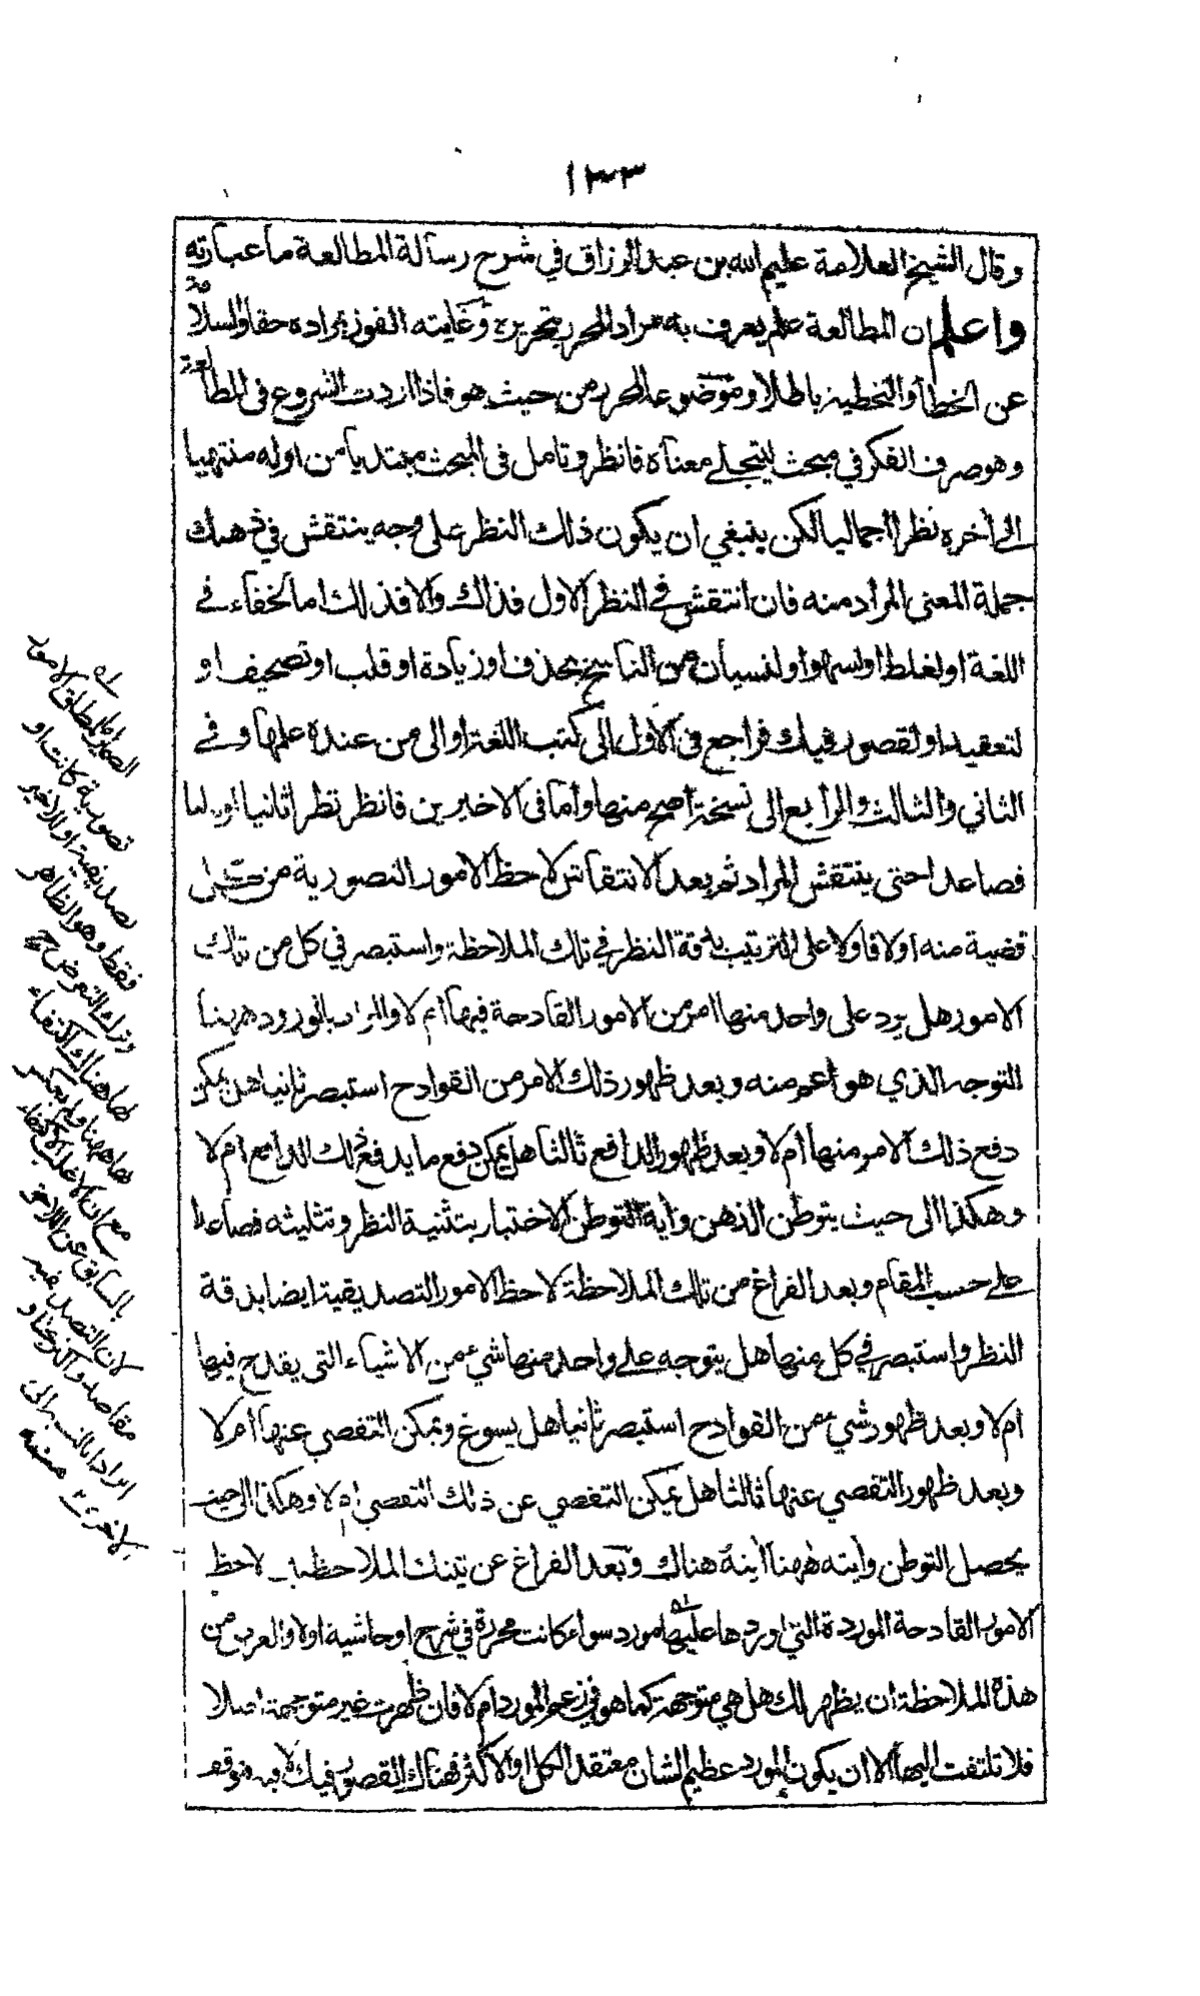 ١٣٣
وقال الشيخ العلامة عليم الله بن عبد الرزاق في شرح رسالة المطالعة ما عبارته
واعلم ان المطالعة علم يعرف به مراد المحرر بتحريره وغايته الفوز بمراده حقا والسلامة
عن الخطأ والتخطية باطلا وموضوعه المحرر من حيث هو فاذا اردت الشروع في المطالعة
وهو صرف الفكر في مبحث ليتجلى معناه فانظر وتامل في المبحث مبتديا من اوله منتهيا
الى آخره نظرا اجماليا لكن ينبغي ان يكون ذلك النظر على وجه ينتقش في ذهنك
جملة المعنى المراد منه فان انتقش في النظر الاول فذاك والا فذلك اما لخفاء في
اللغة او لغلط او لسهو او لنسيان من الناسخ بحذف او زيادة او قلب او تصحيف او
لتعقيد او لقصور فيك فراجع في الاول الى كتب اللغة او الى من عنده علمها وفي
الثاني والثالث والرابع الى نسخة اصح منها واما في الاخيرين فانظر نظرا ثانيا او ثالثا
فصاعدا حتى ينتقش المراد ثم بعد الانتقاش لاحظ الامور التصورية من
قضية منه اولا فاولا على الترتيب بدقة النظر في تلك الملاحظة واستبصر في كل من تلك
الامور هل يرد على واحد منها امر من الامور القادحة فيها ام لا والمراد بالورود ههنا
التوجه الذي هو اعم منه وبعد ظهور ذلك الامر من القوادح استبصر ثانيا هل يمكن
دفع ذلك الامر منها ام لا وبعد ظهور الدافع ثالثا هل يمكن دفع ما يدفع ذلك الدافع ام لا
وهكذا الى حيث يتوطن الذهن واية التوطن الاختبار بتثنية النظر وتثليثه فصاعدا
على حسب المقام وبعد الفراغ من تلك الملاحظة لاحظ الامور التصديقية ايضا بدقة
النظر واستبصر في كل منها هل يتوجه على واحد منها شيء من الاشياء التي يقدح فيها
ام لا وبعد ظهور شيء من القوادح استبصر ثانيا هل يسوغ ويمكن التفصي عنها ام لا
وبعد ظهور التفصي عنها ثالثا هل يمكن التفصي عن ذلك التفصي ام لا وهكذا الى حيث
يحصل التوطن وايته ههنا ايته هناك وبعد الفراغ عن تينك الملاحظتين لاحظ
الامور القادحة الموردة التي اوردها عليها مورد سواء كانت محررة في شرح او حاشية اولا والغرض من
هذه الملاحظة ان يظهر لك هل هي متوجهة كما هو في زعم المورد ام لا فان ظهرت غير متوجهة اصلا
فلا تلتفت اليها الا ان يكون المورد عظيم الشان معتقد الكل او الاكثر فهناك القصور فيك لا فيه فتوقف
الضمير المطلق الامور
تصورية كانت او
تصديقية او للاخير
فقط وهو الظاهر
وترك التعرض
لها هناك اكتفاء
بها ههنا ولم يعكس
مع ان الاغلب الاكتفاء
بالسابق عن اللاحق
لان التصديقية
مقاصد واكثر عناء و
ايرادا بالنسبة الى
الاخرى ١٢ منه